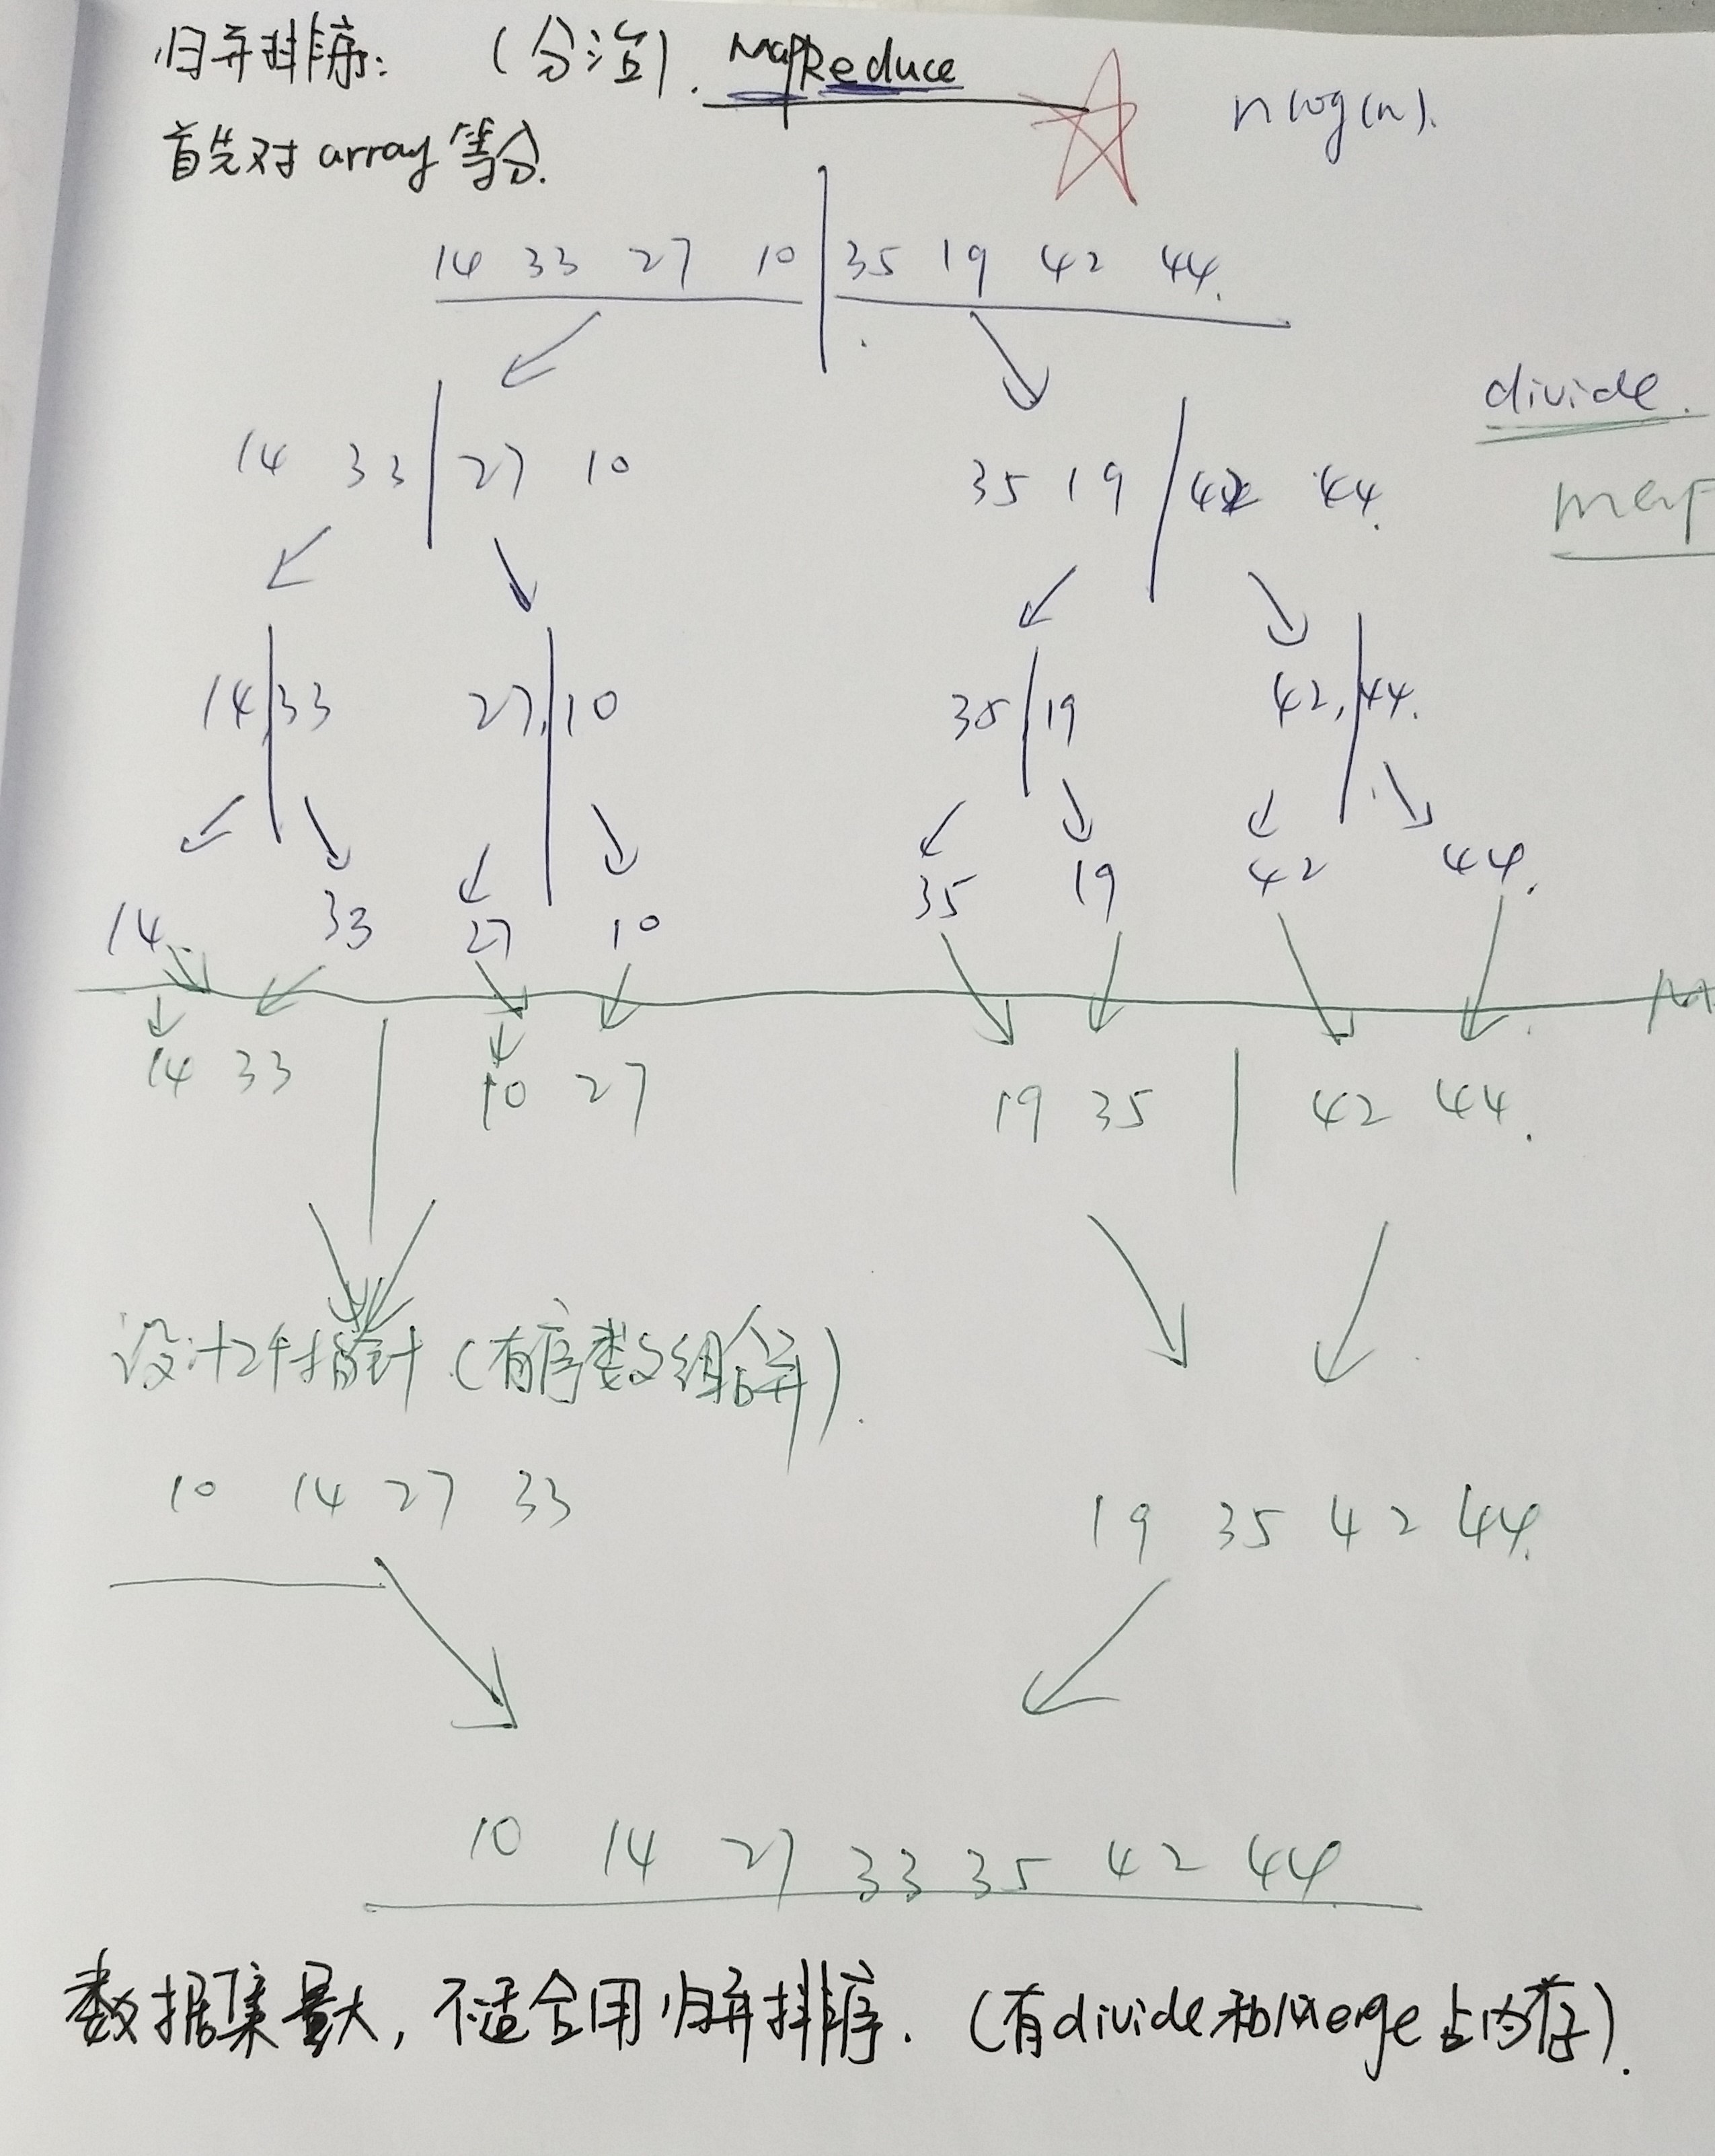 归并排序: (分治). MapReduce nlog(n).
首先对array等分.
14 33 27 10 35 19 42 44.
divide.
14 33 27 10 35 19 42 44.
14,33 27,10 35 19 42,44.
14 33 27 10 35 19 42 44.
14 33 10 27 19 35 42 44.
设计2个指针(有序数组合并).
10 14 27 33 19 35 42 44.
10 14 27 33 35 42 44
数据集量大,不适合用归并排序.(有divide和Merge占内存).